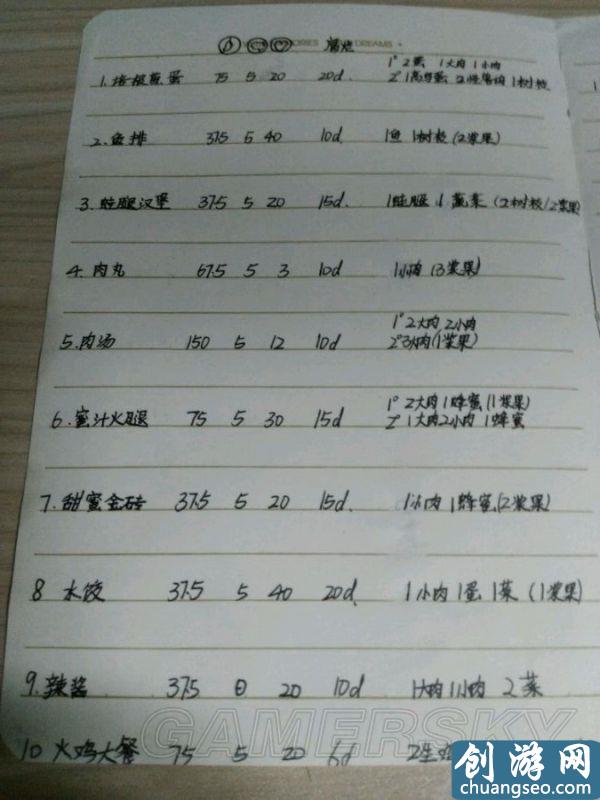 ORIES DREAMS 腐烂
1° 2蛋 1大肉 1小肉
1.培根煎蛋 75 5 20 20d 2° 1高鸟蛋 2怪兽肉 1树枝
2.鱼排 37.5 5 40 10d 1鱼 1树枝 (2浆果)
3.蛙腿汉堡 37.5 5 20 15d. 1蛙腿 1蔬菜 (2树枝/2浆果)
4.肉丸 62.5 5 3 10d 1小肉 (3浆果)
1° 2大肉 2小肉
5.肉汤 150 5 12 10d 2° 3小肉(1浆果)
1° 2大肉 1蜂蜜 (1浆果)
6.蜜汁火腿 75 5 30 15d 2° 1大肉2小肉 1蜂蜜
7.甜蜜金砖 37.5 5 20 15d 1小肉 1蜂蜜 (2浆果)
8 水饺 37.5 5 40 20d 1小肉 1蛋 1菜 (1浆果)
9.辣酱 37.5 0 20 10d 1大肉 1小肉 2菜
GAMERSKY
10 火鸡大餐 75 5 20 6d 2生鸡
创游网
chuangseo.com